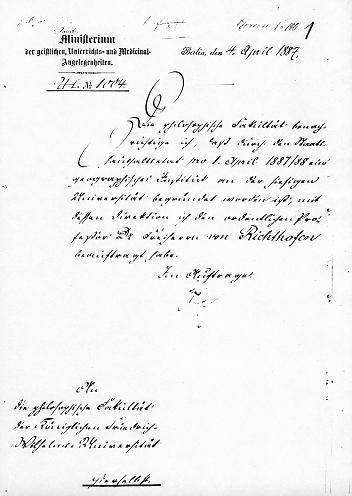 Ministerium
der geistlichen, Unterrichts- und Medicinal-
Angelegenheiten.
Berlin, den 4. April 1887.
1
U I. № 1004
Die philosophische Fakultät benach-
richtige ich, daß durch den Staats-
haushaltsetat pro 1. April 1887/88 ein
geographisches Institut an der hiesigen
Universität begründet worden ist, mit
dessen Direktion ich den ordentlichen Pro-
fessor Dr Freiherrn von Richthofen
beauftragt habe.
Im Auftrage
An
die philosophische Fakultät
der Königlichen Friedrich-
Wilhelms-Universität
hierselbst.